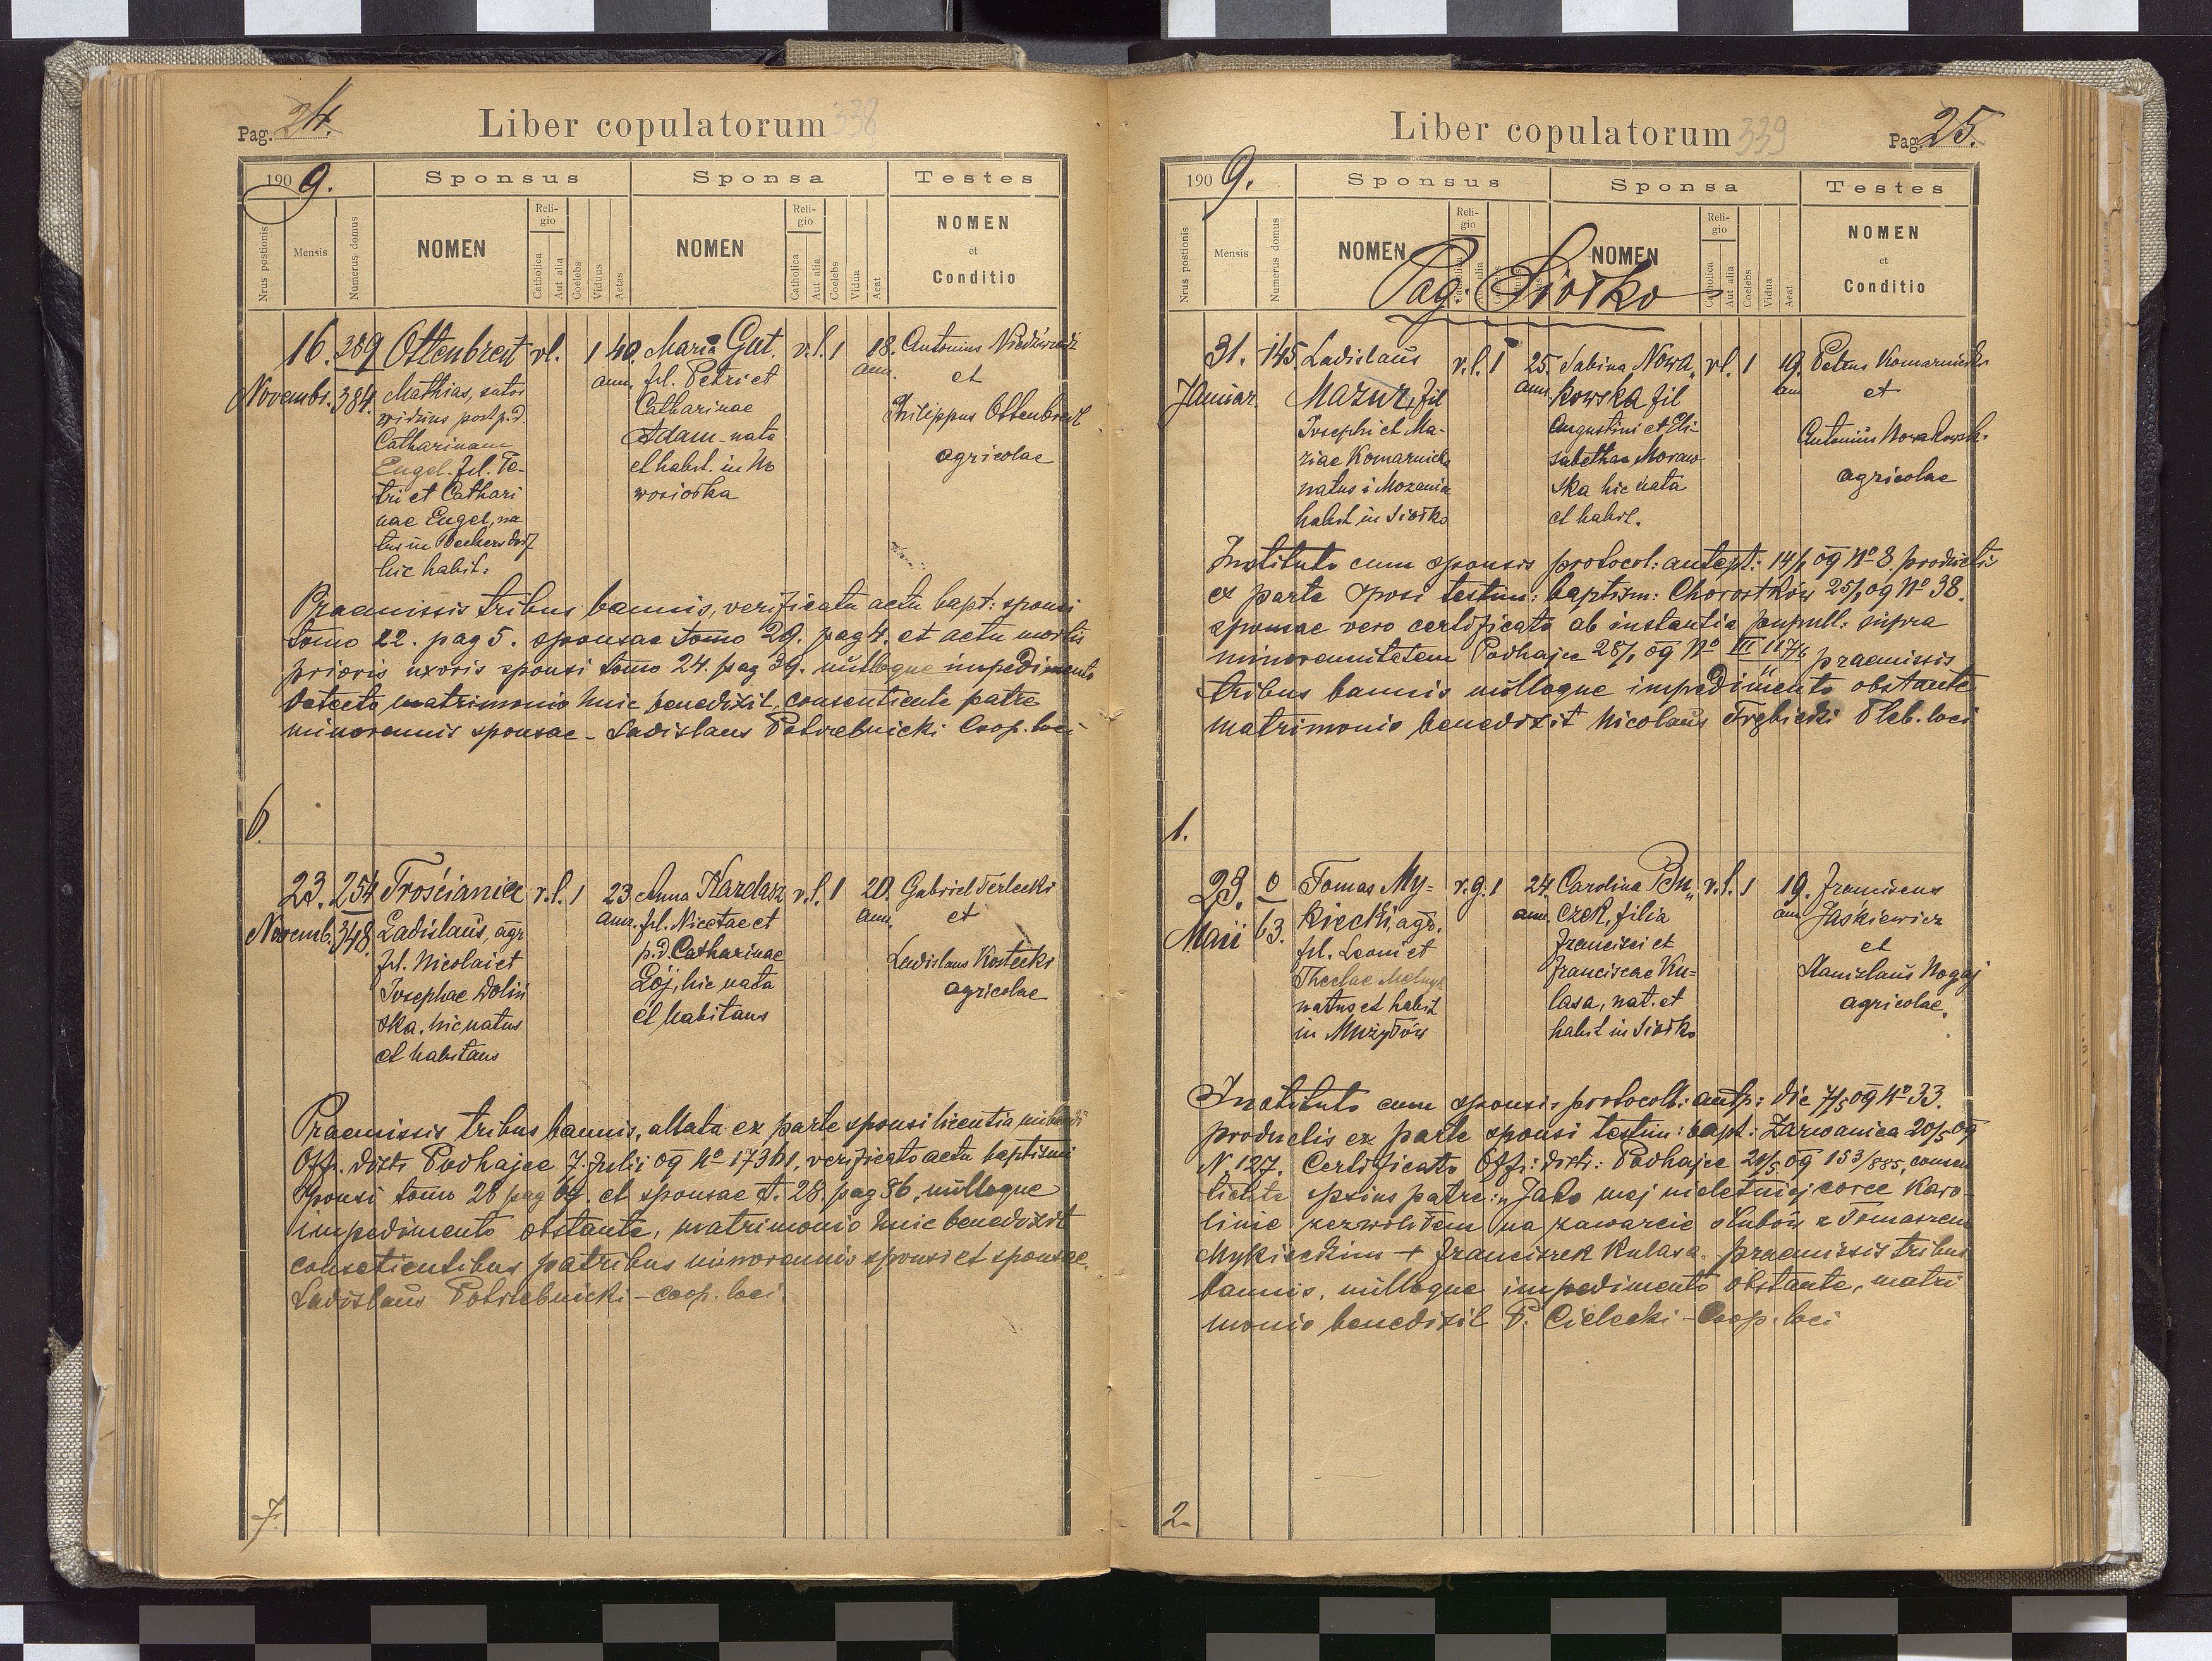 Pag. 24.
Liber copulatorum 338
1909.
Sponsus
Sponsa
Testes
Nrus postionis
Mensis
Numerus domus
NOMEN
Religio
Catholica
Aut alia
Coelebs
Viduus
Aetas
NOMEN
Religio
Catholica
Aut alia
Coelebs
Vidua
Aeat
NOMEN
et
Conditio
6.
16.
Novembr.
389
384.
Ottenbreit
Mathias, sutor
viduus post p. d.
Catharinam
Engel. fil. Pe-
tri et Cathari
nae Engel, na
tus in Beckersdorf
hic habit:
r.l.
1
40.
ann.
Maria Gut.
fil. Petri et
Catharinae
Adam nata
et habit. in No
wosiołka
r.l.
1
18.
ann.
Antonius Niedźwiedź
et
Philippus Ottenbreit
agricolae
Praemissis tribus bannis, verificatu actu bapt: sponsi
tomo 22. pag 5. sponsae tomo 29. pag 4. et actu mortis
prioris uxoris sponsi tomo 24. pag 39. nulloque impedimento
detecto matrimonio huic benedixit, consentiente patre
minorennis sponsae - Ladislaus Potrzebnicki Coop. loci
7.
23.
Novemb.
254
348.
Trościaniec
Ladislaus, agr.
fil. Nicolai et
Josephae Woliń
ska, hic natus
et habitans
r.l.
1
23
ann.
Anna Hardasz
fil. Nicetae et
p. d. Catharinae
Łój, hic nata
et habitans
r.l.
1
20.
ann.
Gabriel Terlecki
et
Ladislaus Kostecki
agricolae
Praemissis tribus bannis, allata ex parte sponsi licentia nubendi
Off. distr. Podhajce 7. Julii 09 No 17361, verificato actu baptismi
sponsi tomo 28 pag 69. et sponsae t. 28. pag 86, nulloque
impedimento obstante, matrimonio huic benedixit
consetientibus patribus minorennis sponsi et sponsae.
Ladislaus Potrzebnicki - coop. loci.
Liber copulatorum 339
Pag. 25.
1909.
Sponsus
Sponsa
Testes
Nrus postionis
Mensis
Numerus domus
NOMEN
Religio
Catholica
Aut alia
NOMEN
Religio
Catholica
Aut alia
Coelebs
Vidua
Aeat
NOMEN
et
Conditio
Pag. Siółko
1.
31.
Januar.
145.
Ladislaus
Mazur, fil
Josephi et Ma-
riae Komarnicka
natus i
habit in Siółko
r.l.
1
25.
ann.
Sabina Nowa„
kowska fil
Augustini et Eli-
sabethae Moraw-
ska hic nata
et habit.
r.l.
1
19.
ann.
Petrus Komarnicki
et
Antonius Nowakowski
agricolae
Instituto cum sponsis protocol: antept: 14/1 09 No 8. productis
ex parte sposi testim: baptism: Chorostków 25/1 09 No 38.
sponsae vero certificato ab instantia pupill: supra
minorennitatem Podhajce 28/1 09 No praemissis
tribus bannis nulloque impedimento obstante
matrimonio benedixit Nicolaus Trębicki Pleb. loci
2.
23.
Maii
0
63.
Tomas My=
kiecki, agr.
fil. Leoni et
Theclae Melnyk
natus et habit
in Mużyłów
r.g.
1
24.
ann.
Carolina
czek, filia
Francisci et
Franciscae Ku=
lasa, nat. et
habit in Siółko
r.l.
1
19.
ann.
Franciscus
Jaśkiewicz
et
Stanislaus Nogaj
agricolae.
Instituto cum sponsis protocoll: antp: die 7/5 09 No 33.
productis ex parte sponsi testim: bapt: Zarwanica 20/5 09
N. 127. Certificato Off: distr: Podhajce 21/5 09 153/885, consen
tiente ipsius patre: „Jako mej nieletniej corce Karo-
linie zezwoliłem na zawarcie ślubów z Tomaszem
Mykieckim + Franciszek Kulasa. praemissis tribus
bannis, nulloque impedimento obstante, matri
monio benedixit P. Cielecki - Coop. loci